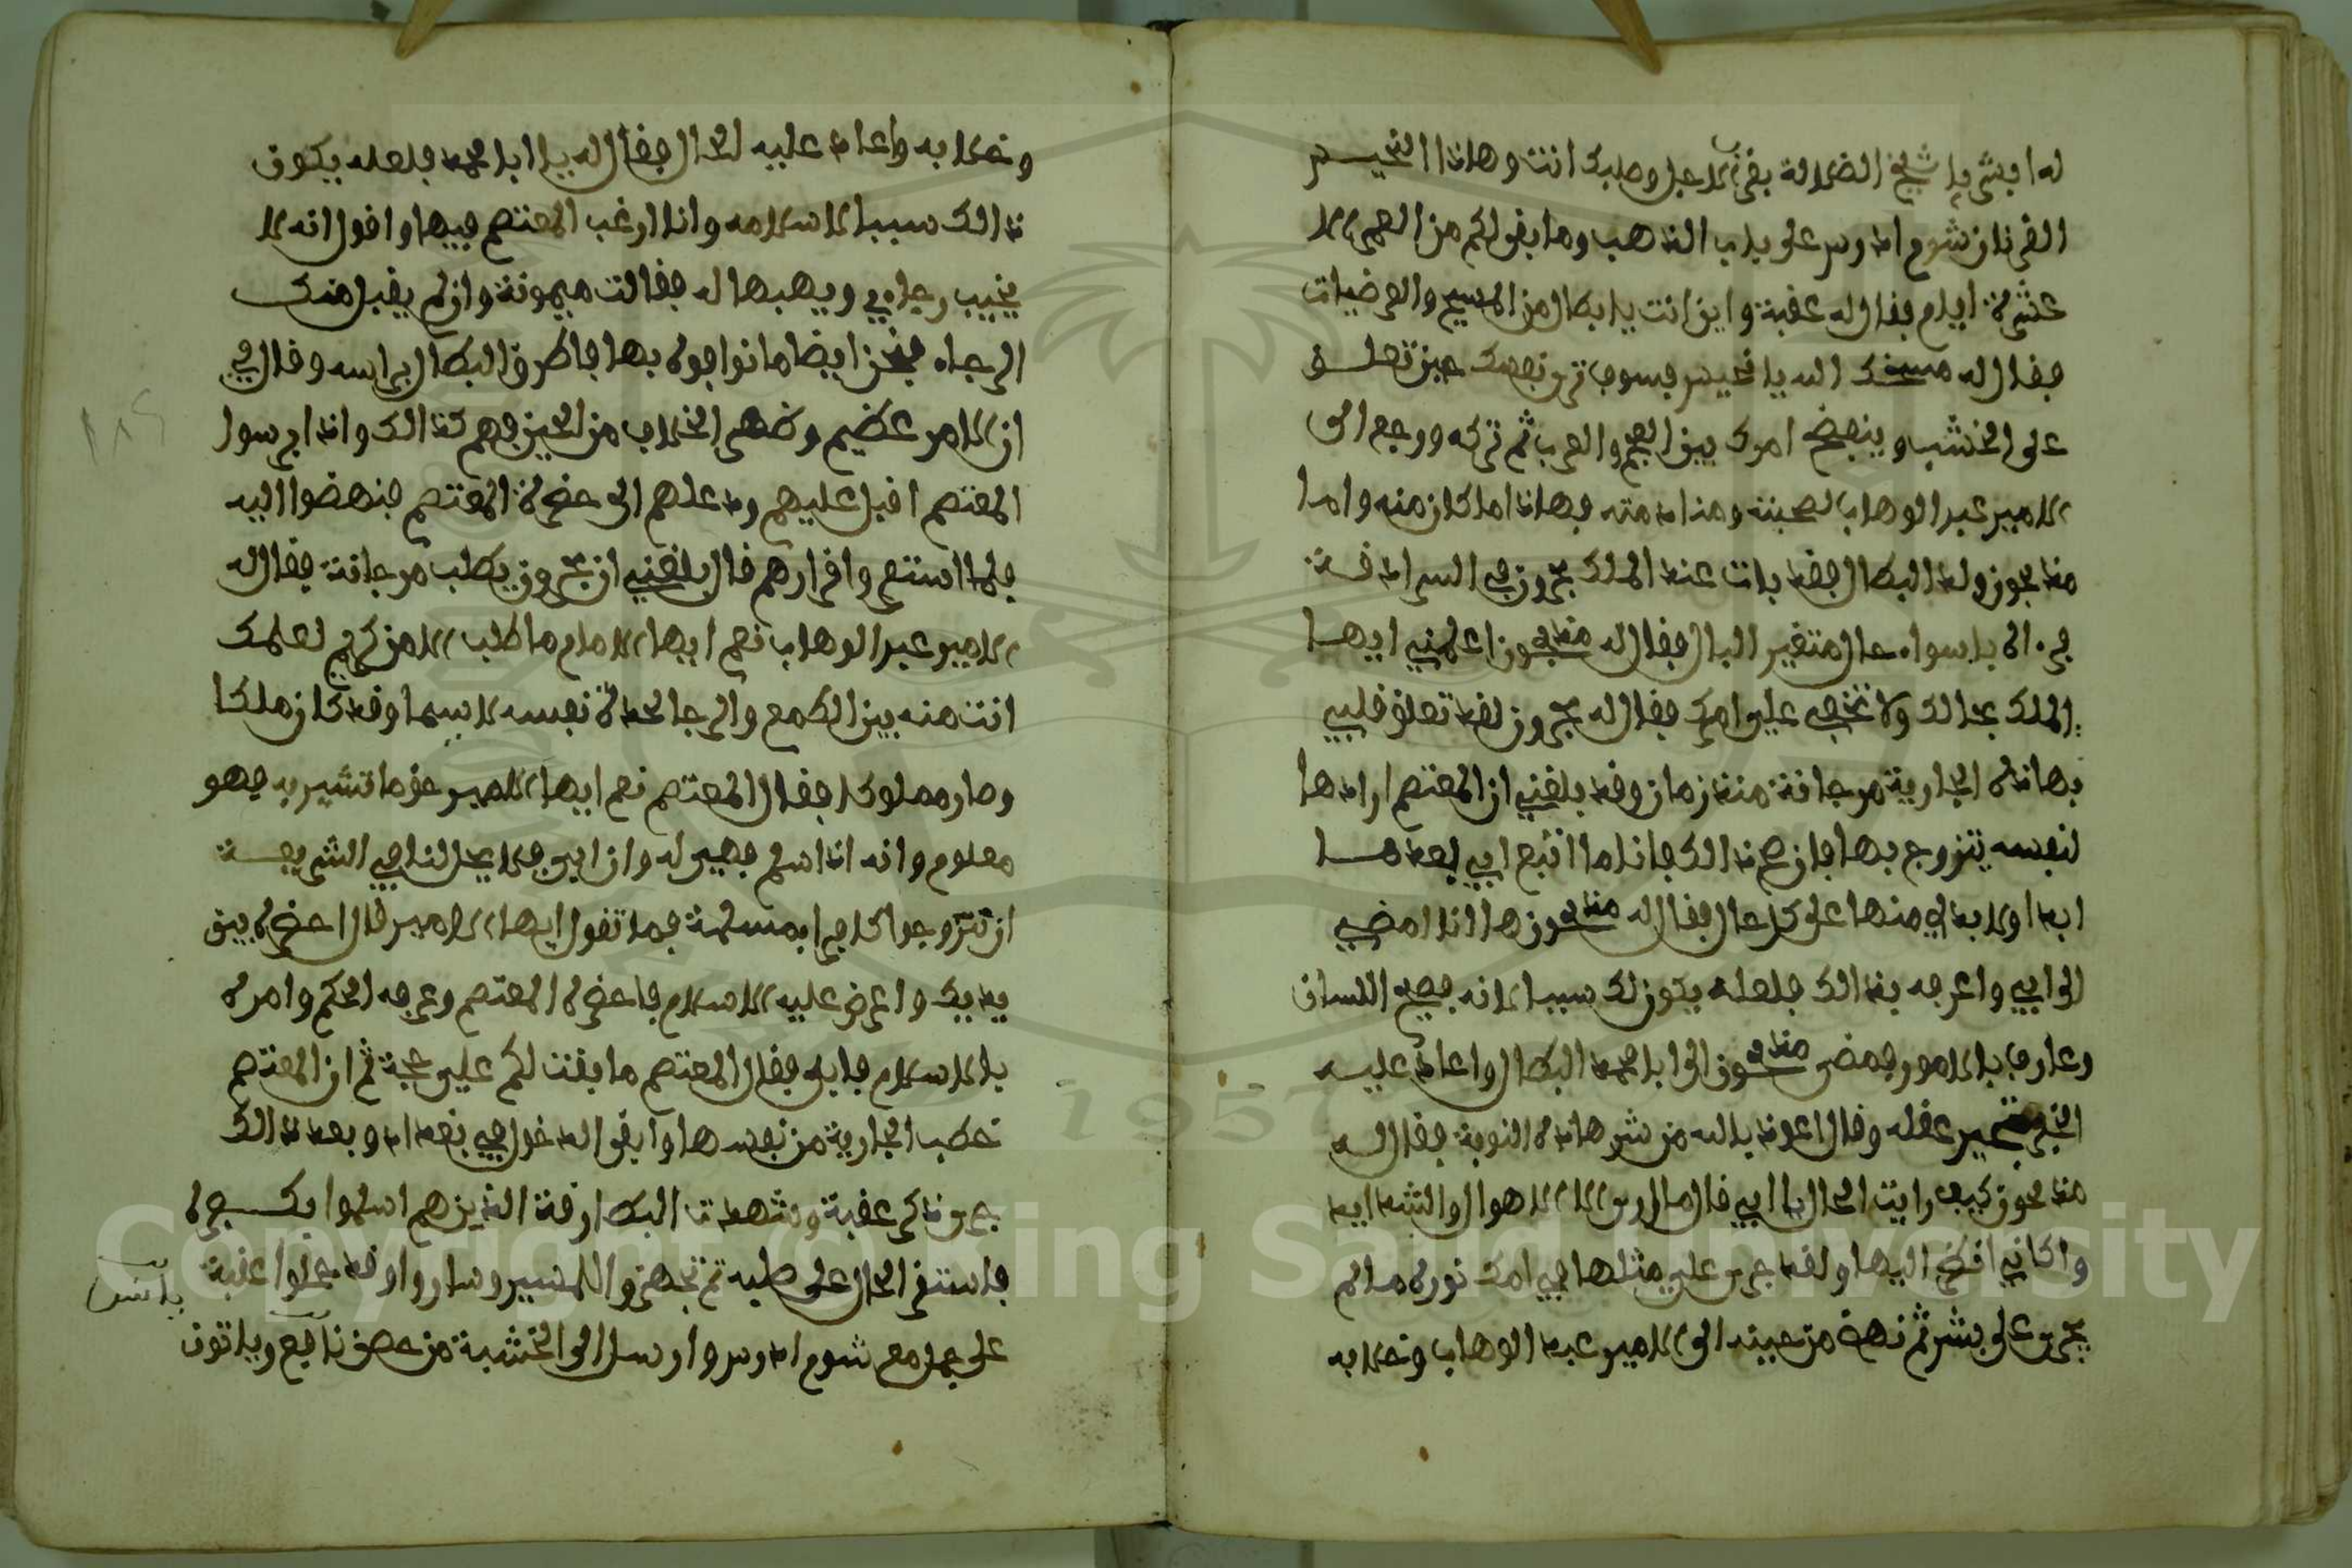 له ابشر يا شيخ الضلالة بقرب الاجل وصلبك انت وهاذا النحيس
القرنان شومدرس على باب الذهب وما بقى لكم من العمر الا
عشرة ايام فقال له عقبة واين انت يا بطال من المسيح والعرضيات
فقال له مسخك الله يا نحيس فسوف ترى نفسك حين تعلق
على الخشب وينفضح امرك بين العجم والعرب ثم تركه ورجع الى
الامير عبد الوهاب لصحبته ومنادمته فهاذا ما كان منه واما
مذبحون ولد البطال فقد بات عند الملك بحرون في السرادقة
فرءاه باسواء حال متغير البال فقال له مذبحون اعلمني ايها
الملك بحالك ولا تخفي علي امرك فقال له بحرون لقد تعلق قلبي
بهاذه الجارية مرجانة منذ زمان وقد بلغني ان المعتصم ارادها
لنفسه يتزوج بها فان صح ذالك فانا ما انتفع ابي بعدها
ابدا ولا بد لي منها على كل حال فقال له مذبحون ها انا امضي
الى ابي واعرفه بذالك فلعله يكون لك سببا لانه فصيح اللسان
وعارف بالامور فمضى مذبحون الى ابا محمد البطال واعاد عليه
الخبر فتحير عقله وقال اعوذ بالله من شر هاذه النوبة فقال له
مذبحون كيف رايت الحال يا ابي قال ما ارى الا الاهوال والشدايد
واكاني انظر اليها ولقد جرى علي مثلها في امك نوره ما لم
يجرى على بشر ثم نهض من حينه الى الامير عبد الوهاب وخلا به
وخلا به واعاد عليه الحال فقال له يا ابا محمد فلعله يكون
ذالك سببا لاسلامه وانا ارغب المعتصم فيها واقول انه لا
يخيب رجاءي ويهبها له فقالت ميمونة وان لم يقبل منك
الرجاء فنحن ايضا ما نوافوه بها فاطرق البطال براسه وقال في
ان الامر عظيم وظهر الخلاف من الحين فهم كذالك واذا برسول
المعتصم اقبل عليهم ودعاهم الى حضرة المعتصم فنهضوا اليه
فلما استتم واقرارهم قال بلغني ان بحرون يطلب مرجانة فقال له
الامير عبد الوهاب نعم ايها الامام ما طلب الا من كريم لعلمك
انت منه بين الطمع والرجا لحياة نفسه لا سيما وقد كان ملكا
وصار مملوكا فقال المعتصم نعم ايها الامير حق ما تشير به فهو
معلوم وانه اذا اسلم فهي له وان ابى فلا يحل لنا في الشريعة
ان نزوجوا كافرا بمسلمة فما تقول ايها الامير قال احضره بين
يديك واعرض عليه الاسلام فاحضره المعتصم وعرفه الحكم وامره
بالاسلام فابى فقال المعتصم ما بقت لكم علي حجة ثم ان المعتصم
خطب الجارية من نفسها وابقى الدخول في بغداد وبعد ذالك
جرى ذكر عقبة وشهدت البطارقة الذين هم اسلموا بكفره
فاستقر الحال على صلبه ثم تجهزوا للمسير وساروا وقد حملوا عقبة
على جمل مع شومدرس وارسل الى الخشبة من حصن نافع وياتون
باخشبة
١٨٩
Copyright © King Saud University
1957